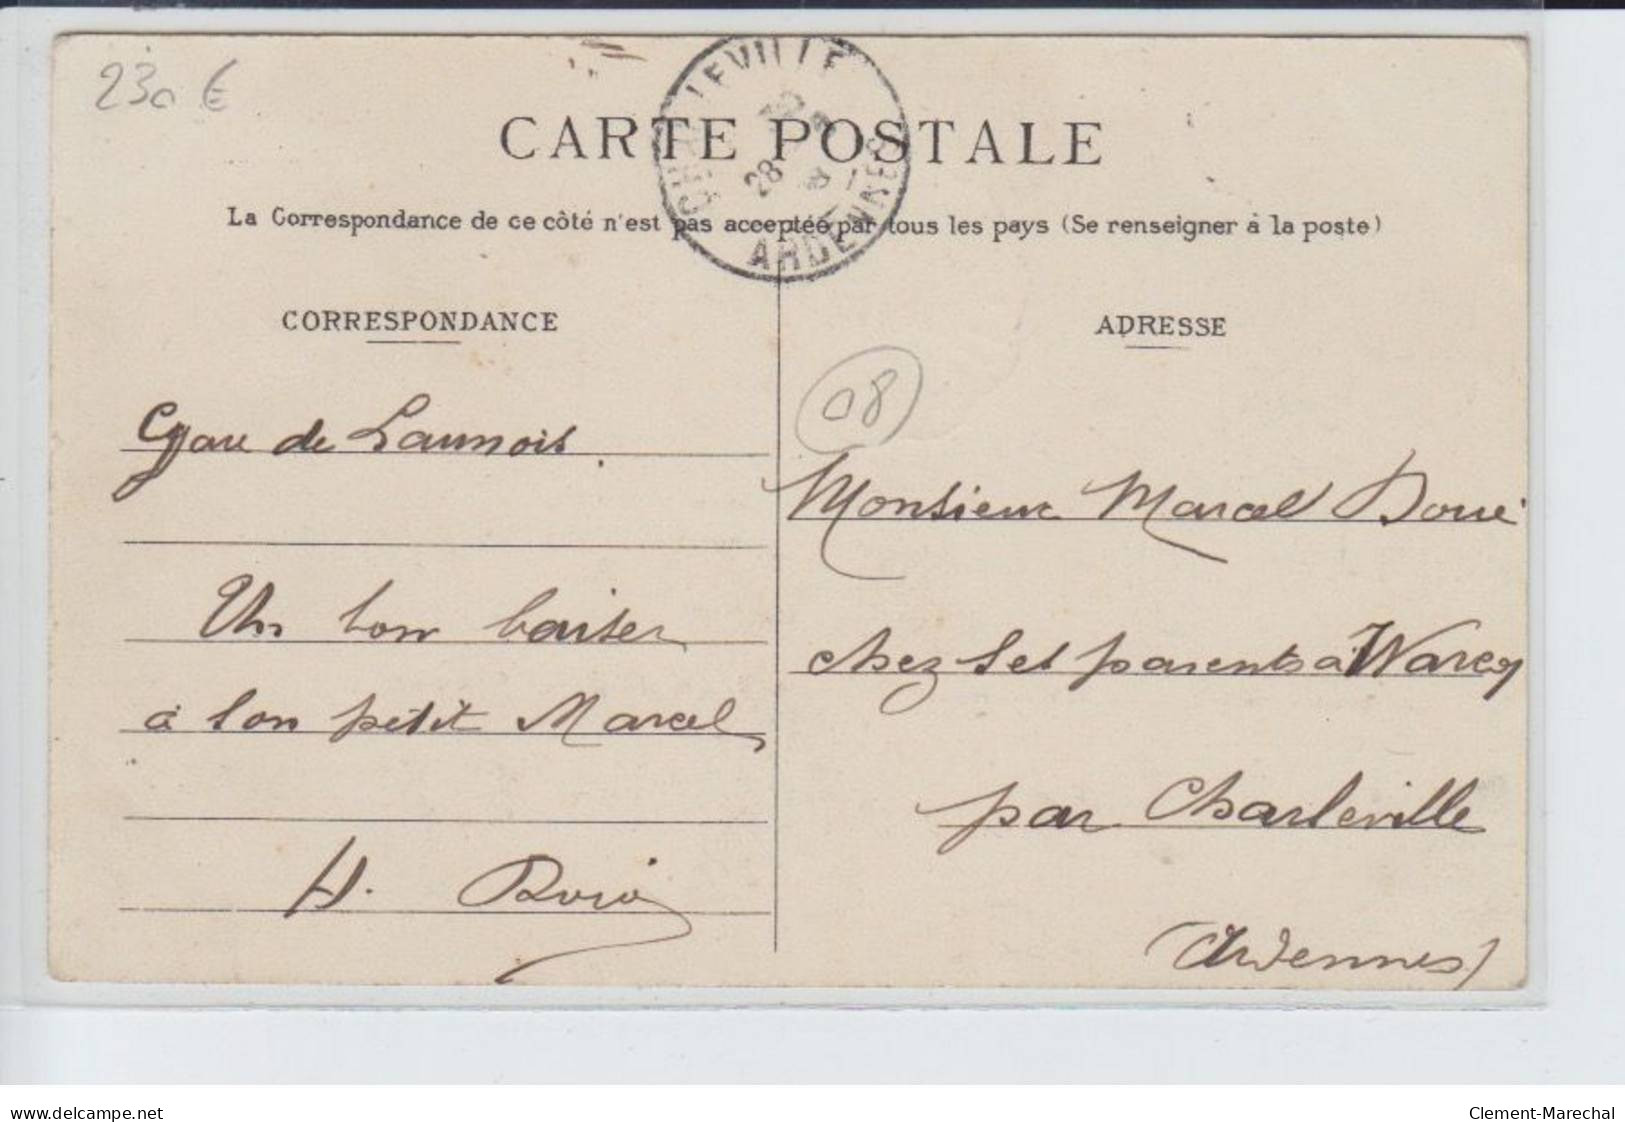 230 €
CHARLEVILLE
28
ARDENNES
CARTE POSTALE
La Correspondance de ce côté n'est pas acceptée par tous les pays (Se renseigner à la poste)
CORRESPONDANCE
Gare de Launois.
Un bon baiser
à son petit Marcel
H.
ADRESSE
08
Monsieur Marcel Doué
chez ses parents à Warcq
par Charleville
(Ardennes)
www.delcampe.net
Clement-Marechal